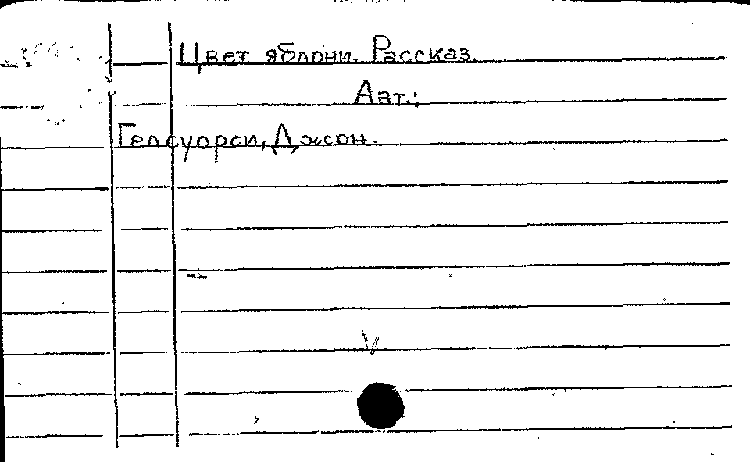 Цвет яблони. Рассказ.
Авт.:
Голсуорси, Джон.